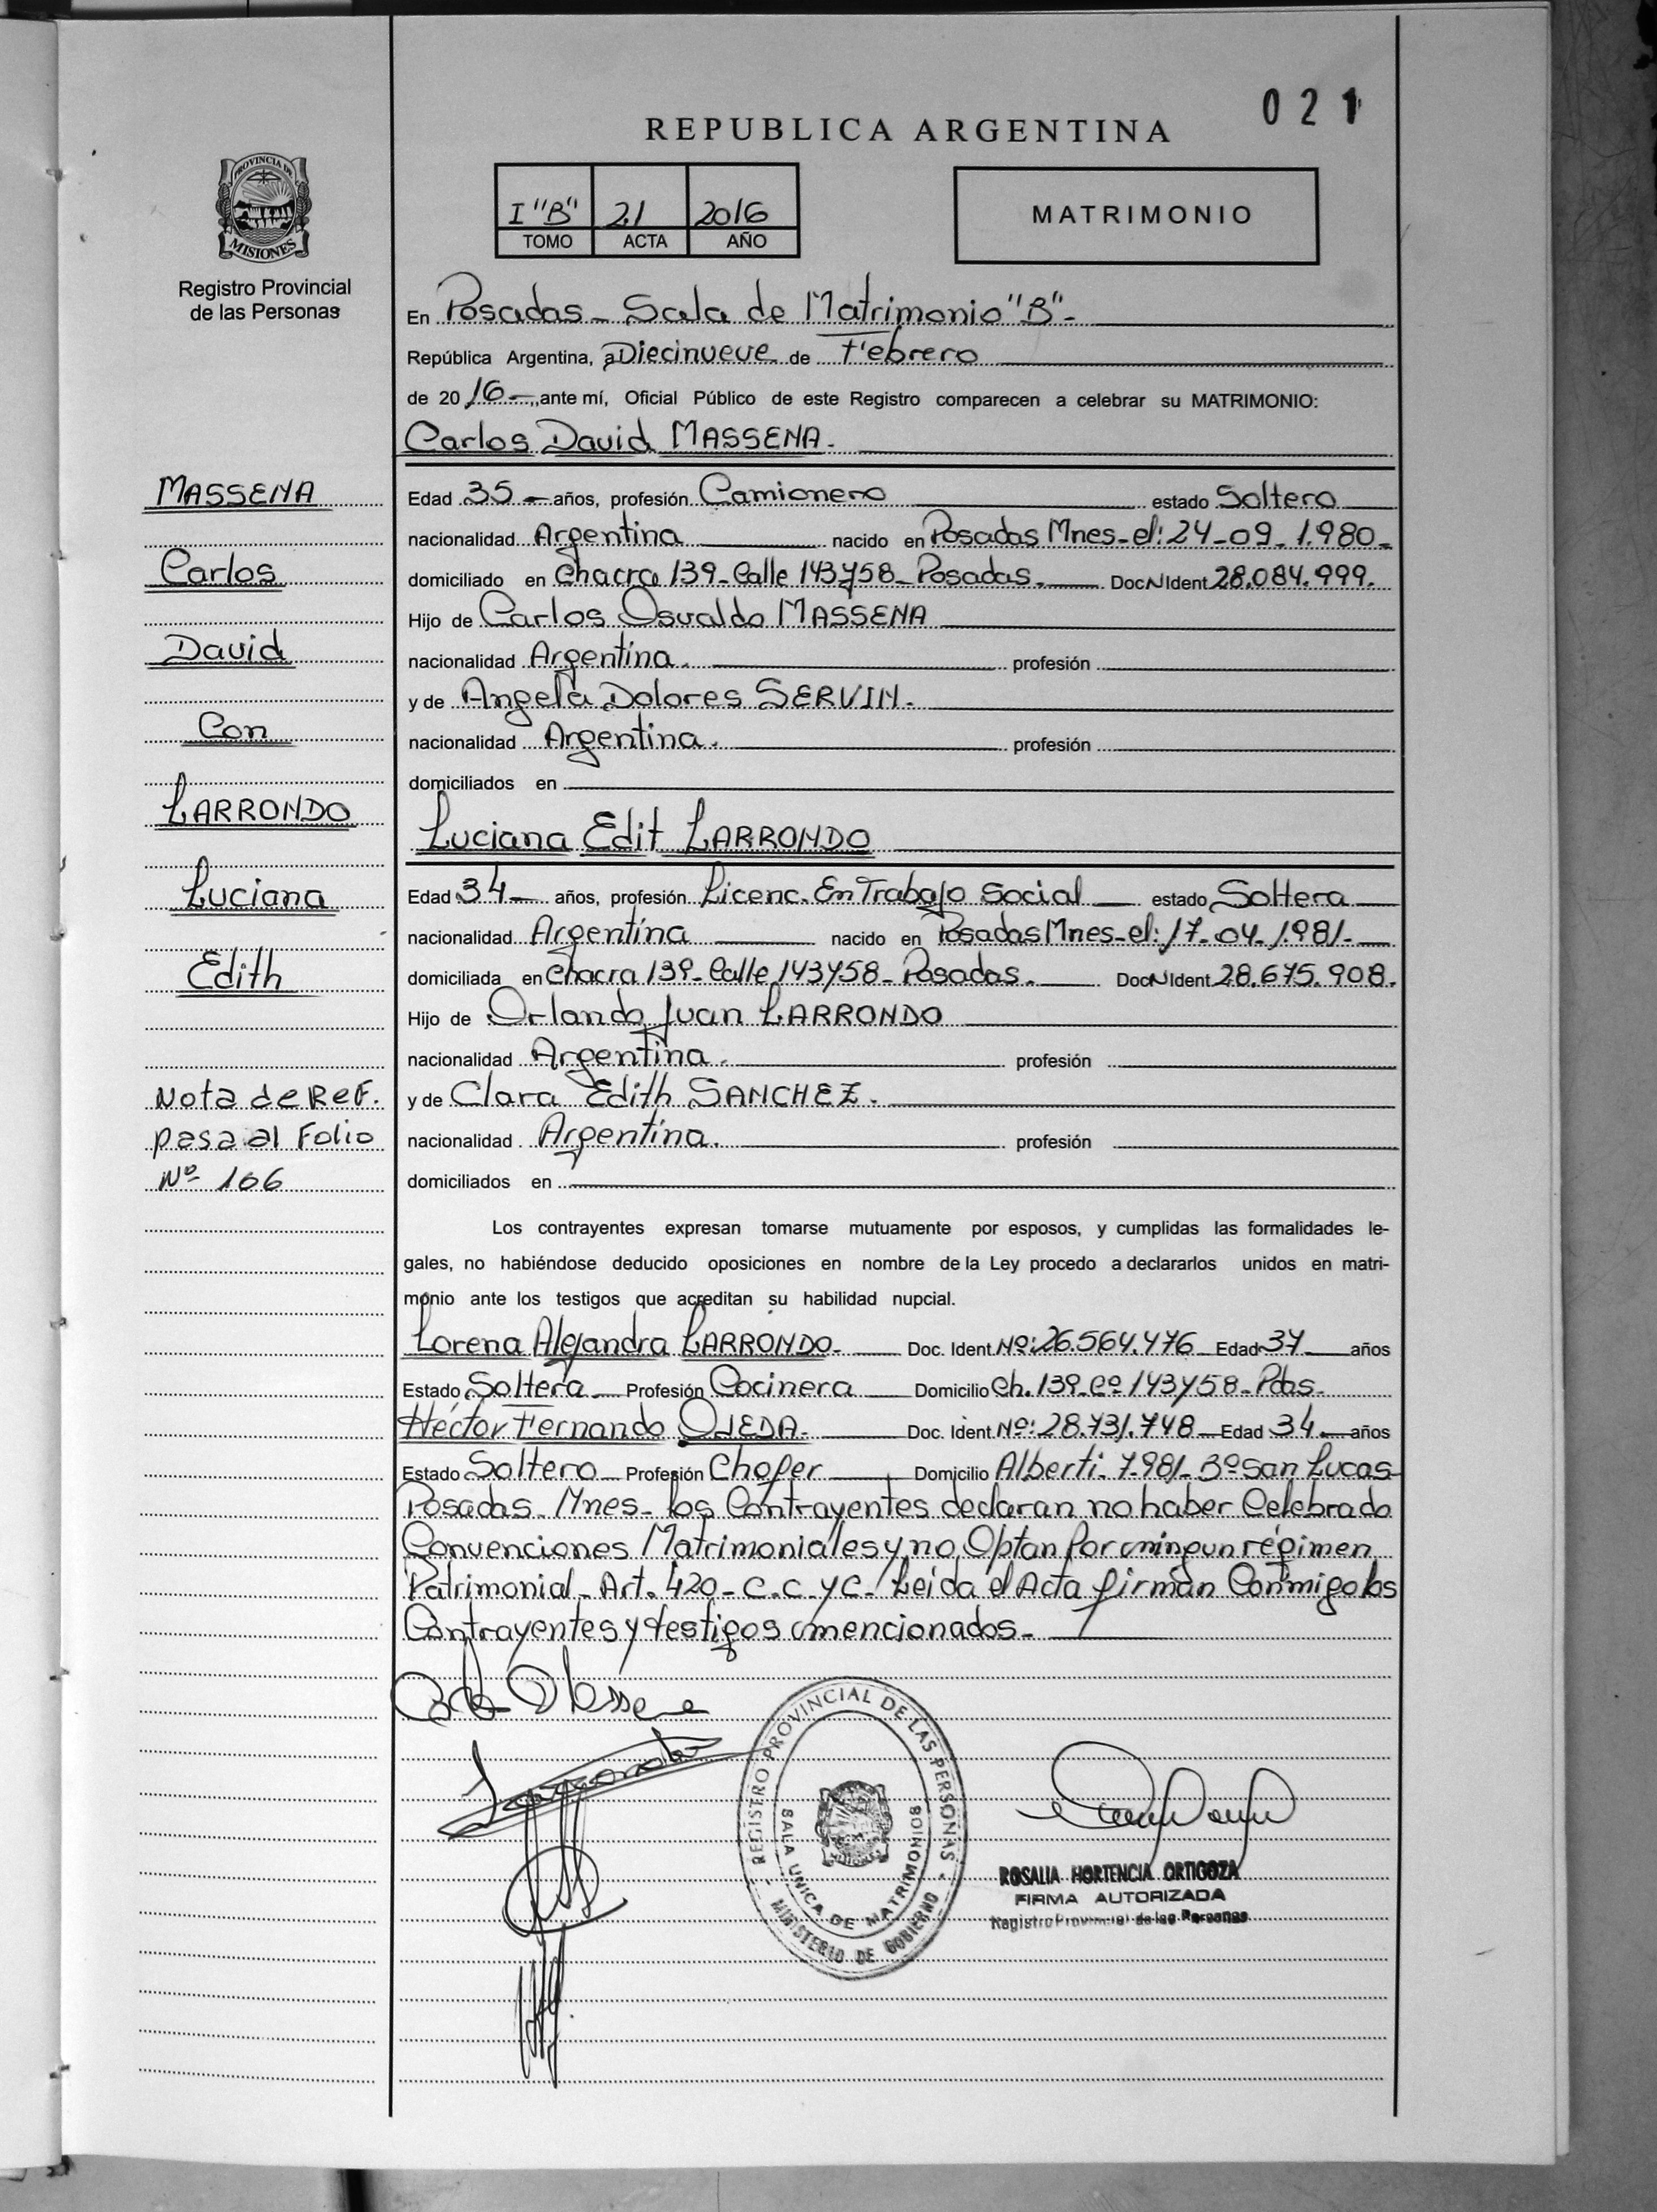 021
REPUBLICA ARGENTINA
I "B" 21 2016
TOMO ACTA AÑO
MATRIMONIO
PROVINCIA DE
MISIONES
Registro Provincial
de las Personas
En Posadas - Sala de Matrimonio "B" -
República Argentina, a Diecinueve de Febrero
de 2016 - ,ante mí, Oficial Público de este Registro comparecen a celebrar su MATRIMONIO:
Carlos David MASSENA.
MASSENA
Carlos
David
Con
LARRONDO
Luciana
Edith
Nota de Ref.
pasa al Folio
Nº 166
Edad 35 - años, profesión Camionero estado Soltero
nacionalidad Argentina nacido en Posadas Mnes - el: 24-09-1.980-
domiciliado en Chacra 139 - Calle 143 y 58 - Posadas. Doc N Ident 28.084.999.
Hijo de Carlos Osvaldo MASSENA
nacionalidad Argentina. profesión
y de Angela Dolores SERVIN.
nacionalidad Argentina. profesión
domiciliados en
Luciana Edit LARRONDO
Edad 34 - años, profesión Licenc. En Trabajo Social estado Soltera
nacionalidad Argentina nacido en Posadas Mnes - el: 17-04-1.981-
domiciliada en Chacra 139 - Calle 143 y 58 - Posadas. Doc N Ident 28.675.908.
Hijo de Orlando Juan LARRONDO
nacionalidad Argentina. profesión
y de Clara Edith SANCHEZ.
nacionalidad Argentina. profesión
domiciliados en
Los contrayentes expresan tomarse mutuamente por esposos, y cumplidas las formalidades le-
gales, no habiéndose deducido oposiciones en nombre de la Ley procedo a declararlos unidos en matri-
monio ante los testigos que acreditan su habilidad nupcial.
Lorena Alejandra LARRONDO- Doc. Ident Nº: 26.564.476 Edad 37 años
Estado Soltera Profesión Cocinera Domicilio Ch. 139 - Cº 143 y 58 - Pdas-
Héctor Fernando OJEDA- Doc. Ident Nº: 28.731.748 Edad 34 años
Estado Soltero Profesión Chofer Domicilio Alberti - 7.981 - Bº San Lucas
Posadas - Mnes - los Contrayentes declaran no haber Celebrado
Convenciones Matrimoniales y no Optan Por ningun régimen
Patrimonial - Art. 420 - C.C. y C. - Leída el Acta firman Conmigo los
Contrayentes y testigos mencionados -
REGISTRO PROVINCIAL DE LAS PERSONAS
SALA UNICA DE MATRIMONIOS
MINISTERIO DE GOBIERNO
ROSALIA HORTENCIA ORTIGOZA
FIRMA AUTORIZADA
Registro Provincial de las Personas